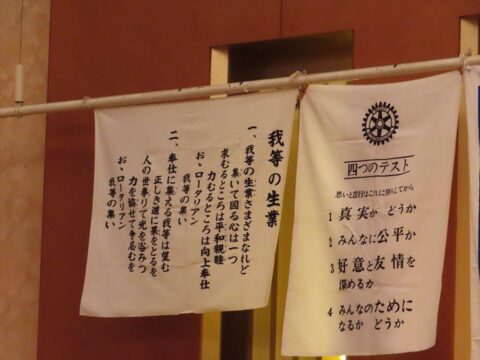 我等の生業
一、我等の生業さまざまなれど
集いて図る心は一つ
求むるところは平和親睦
力むるところは向上奉仕
おゝロータリアン
我等の集い
二、奉仕に集える我等は望む
正しき道に果をとるを
人の世挙りて光を浴みつ
力を協せて争忌むを
おゝロータリアン
我等の集い
四つのテスト
言行はこれに照らしてから
1 真実か どうか
2 みんなに公平か
3 好意と友情を
深めるか
4 みんなのために
なるか どうか